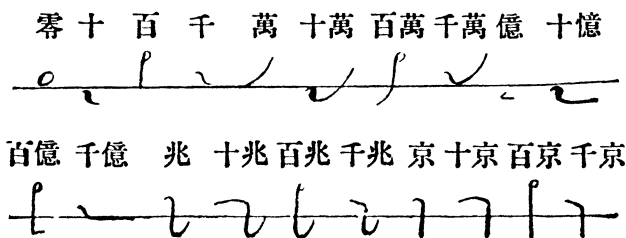 零 十 百 千 萬 十萬 百萬 千萬 億 十憶
百億 千億 兆 十兆 百兆 千兆 京 十京 百京 千京